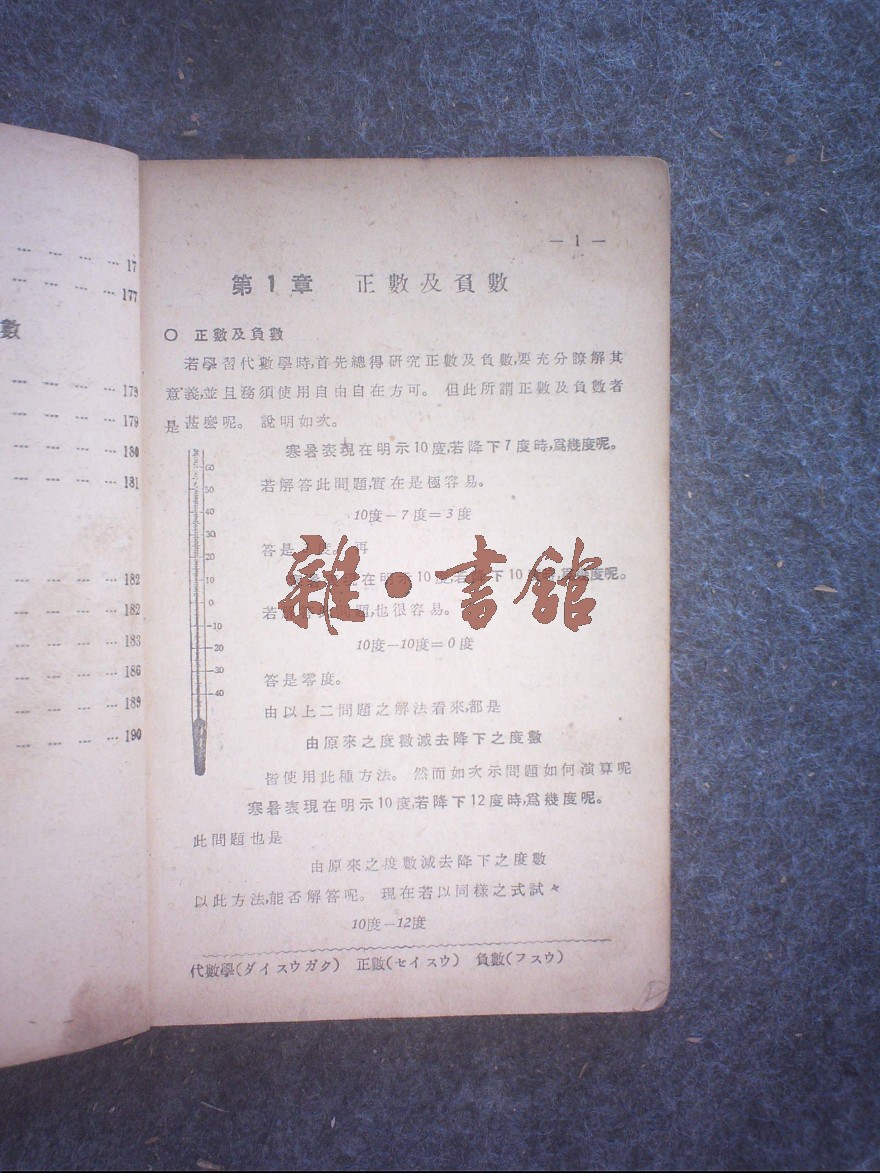 … … … … 17
… … … … 177
數
… … … … 179
… … … … 179
… … … … 180
… … … … 181
… … … … 182
… … … … 182
… … … … 183
… … … … 186
… … … … 189
… … … … 190
— 1 —
第1章 正數及負數
○ 正數及負數
若學習代數學時,首先總得研究正數及負數,要充分瞭解其
意義,並且務須使用自由自在方可。 但此所謂正數及負數者
是甚麼呢。 說明如次。
寒暑表現在明示10度,若降下7度時,爲幾度呢。
若解答此問題,實在是極容易。
10度-7度=3度
答是 度。 再
現在明示10度,若降下10度 ,爲 度呢。
若 問題,也很容易。
10度-10度=0度
答是零度。
由以上二問題之解法看來,都是
由原來之度數減去降下之度數
皆使用此種方法。 然而如次示問題如何演算呢
寒暑表現在明示10度,若降下12度時,爲幾度呢。
此問題也是
由原來之度數減去降下之度數
以此方法,能否解答呢。 現在若以同樣之式試々
10度-12度
代數學(ダイスウガク) 正數(セイスウ) 負數(フスウ)
60
50
40
30
20
10
0
-10
-20
-30
-40
雜·書館